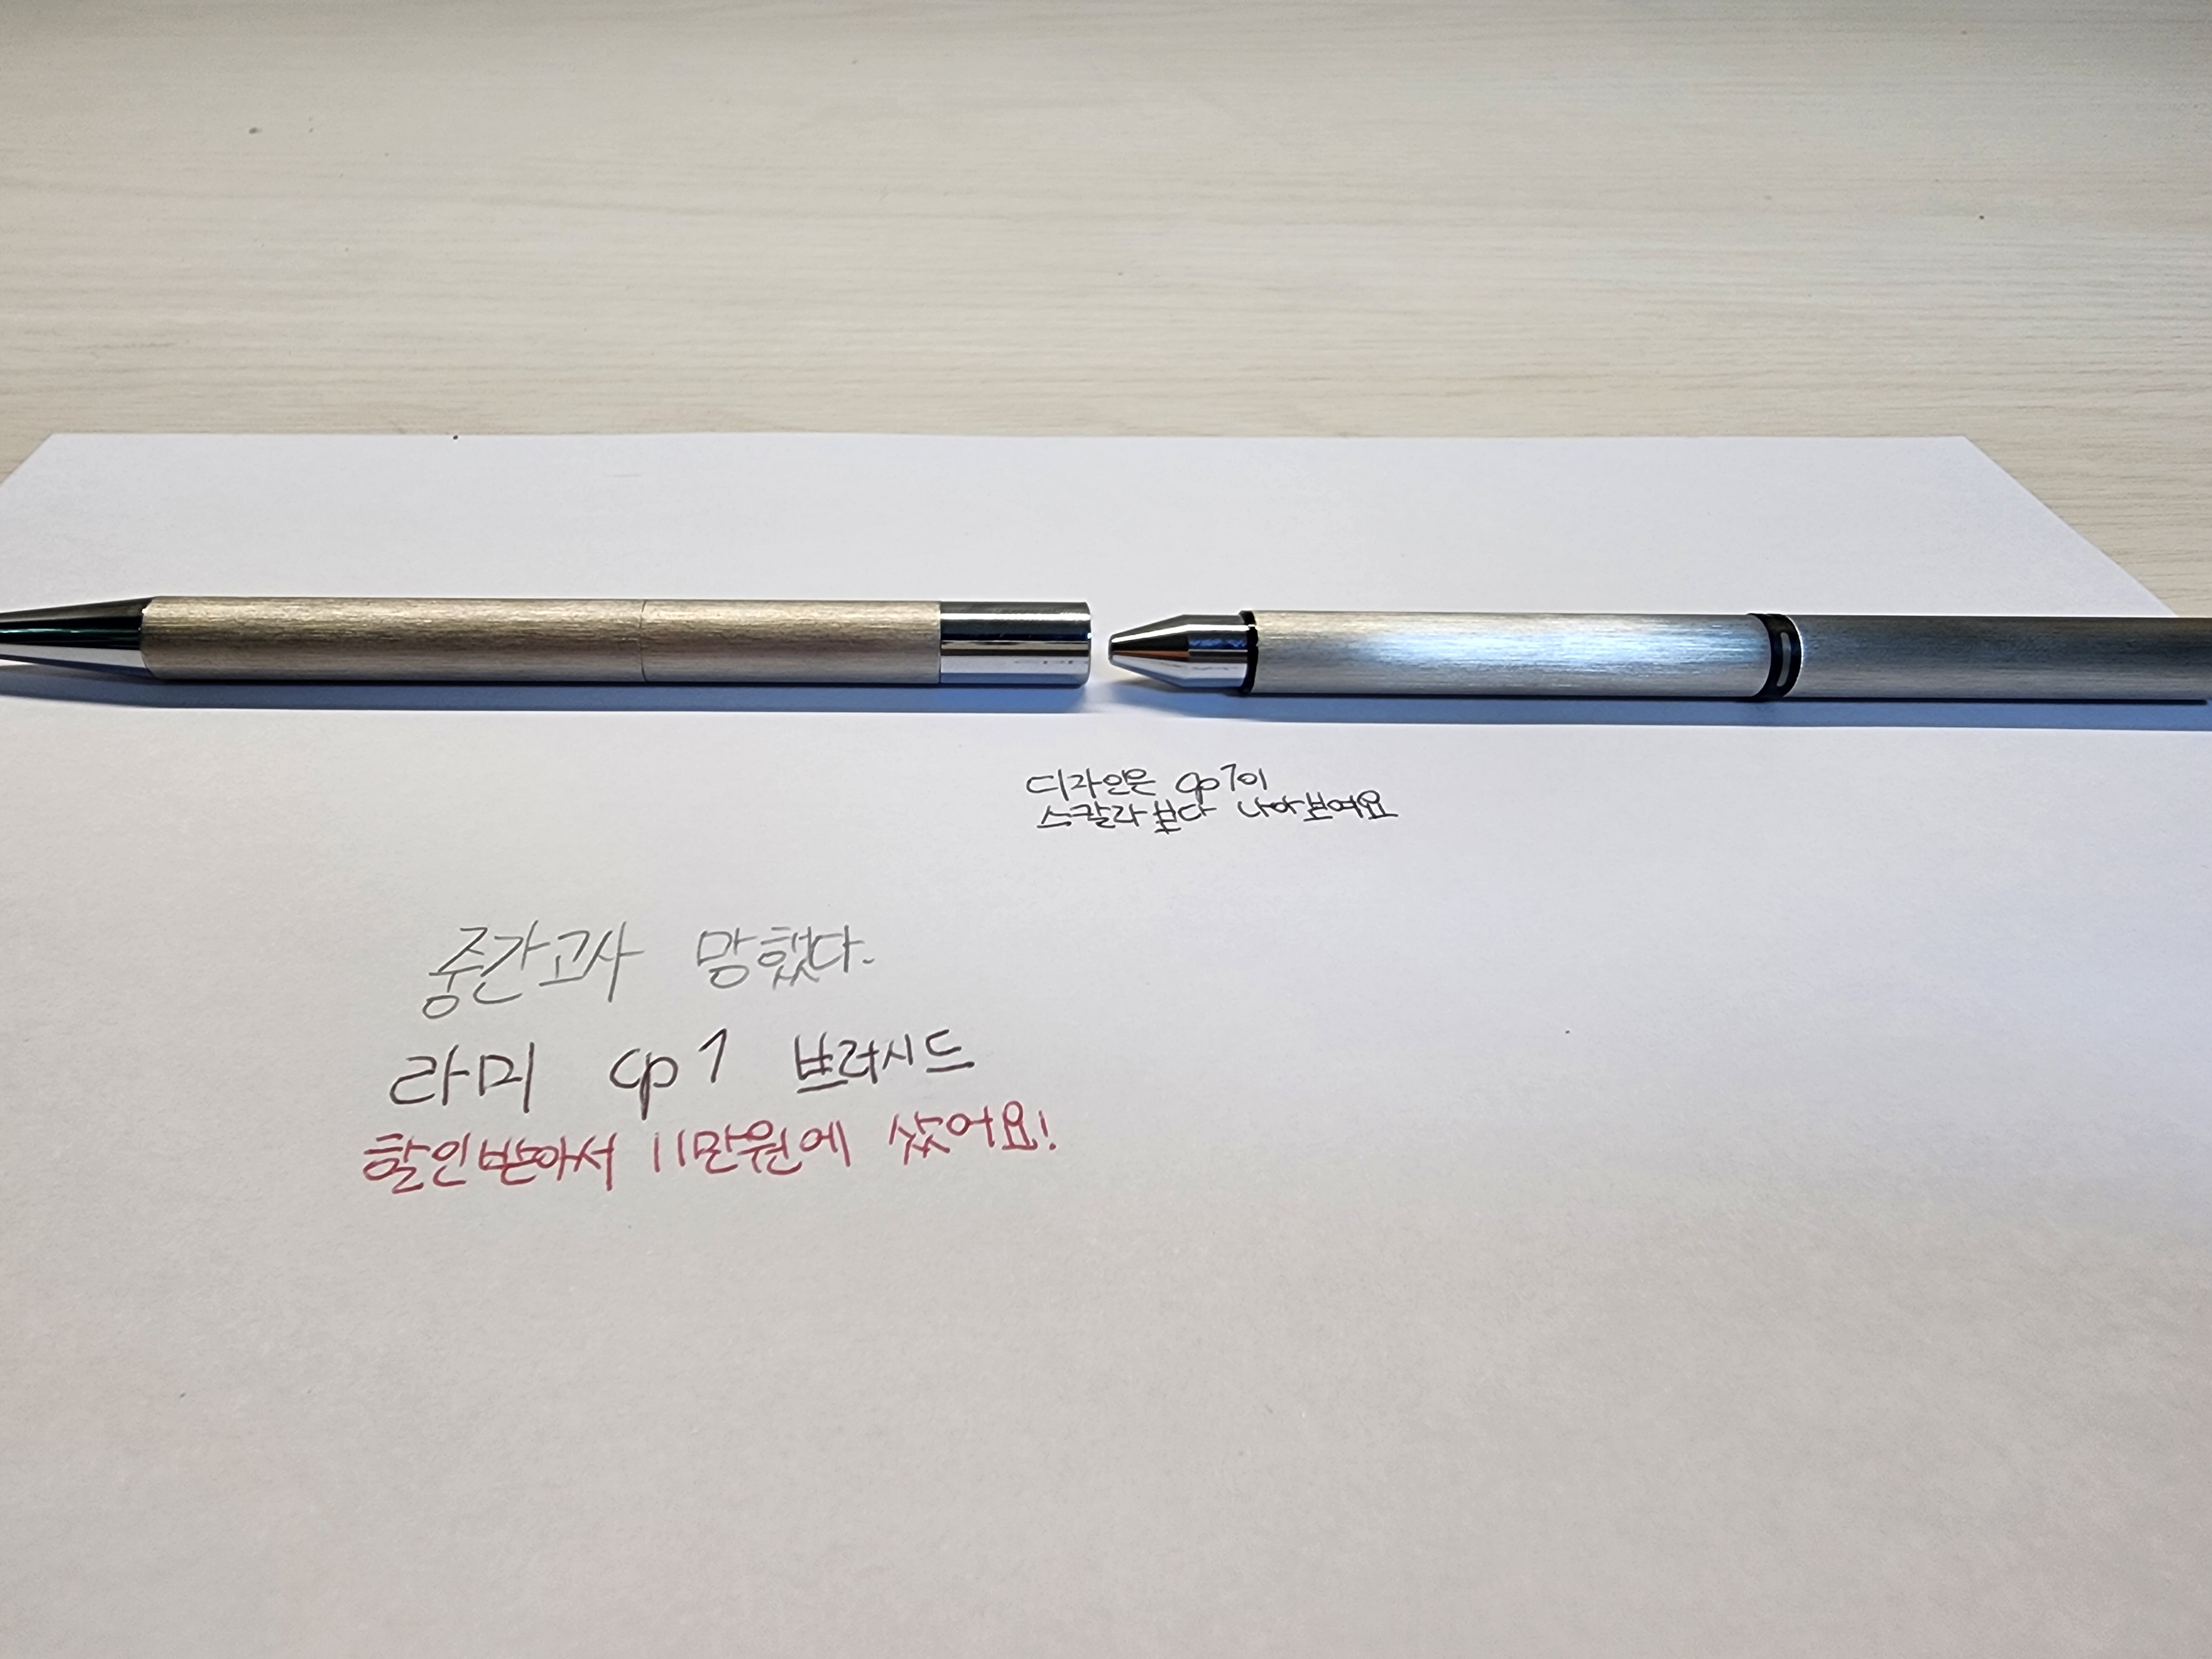 디자인은 cp1이
스칼라보다 나아보여요
중간고사 망했다.
라미 cp1 브러시드
할인받아서 11만원에 샀어요!